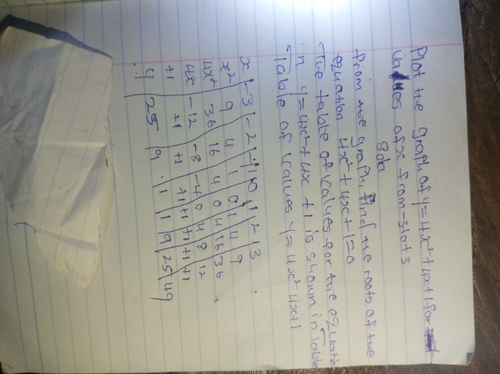 Plot the graph of y = 4x² + 4x + 1 for
values of x from -3 to +3
Soln
From the graph, find the roots of the
equation 4x² + 4x + 1 = 0
The table of values for the equatio
n y = 4x² + 4x + 1 is shown in table
Table of values y = 4x² 4x+1
x | -3 | -2 | -1 | 0 | 1 | 2 | 3
x² 9 4 1 0 1 4 9
4x² 36 16 4 0 4 16 36
4x -12 -8 -4 0 4 8 12
+1 +1 +1 +1 +1 +1 +1 +1
y 25 9 1 1 9 25 49